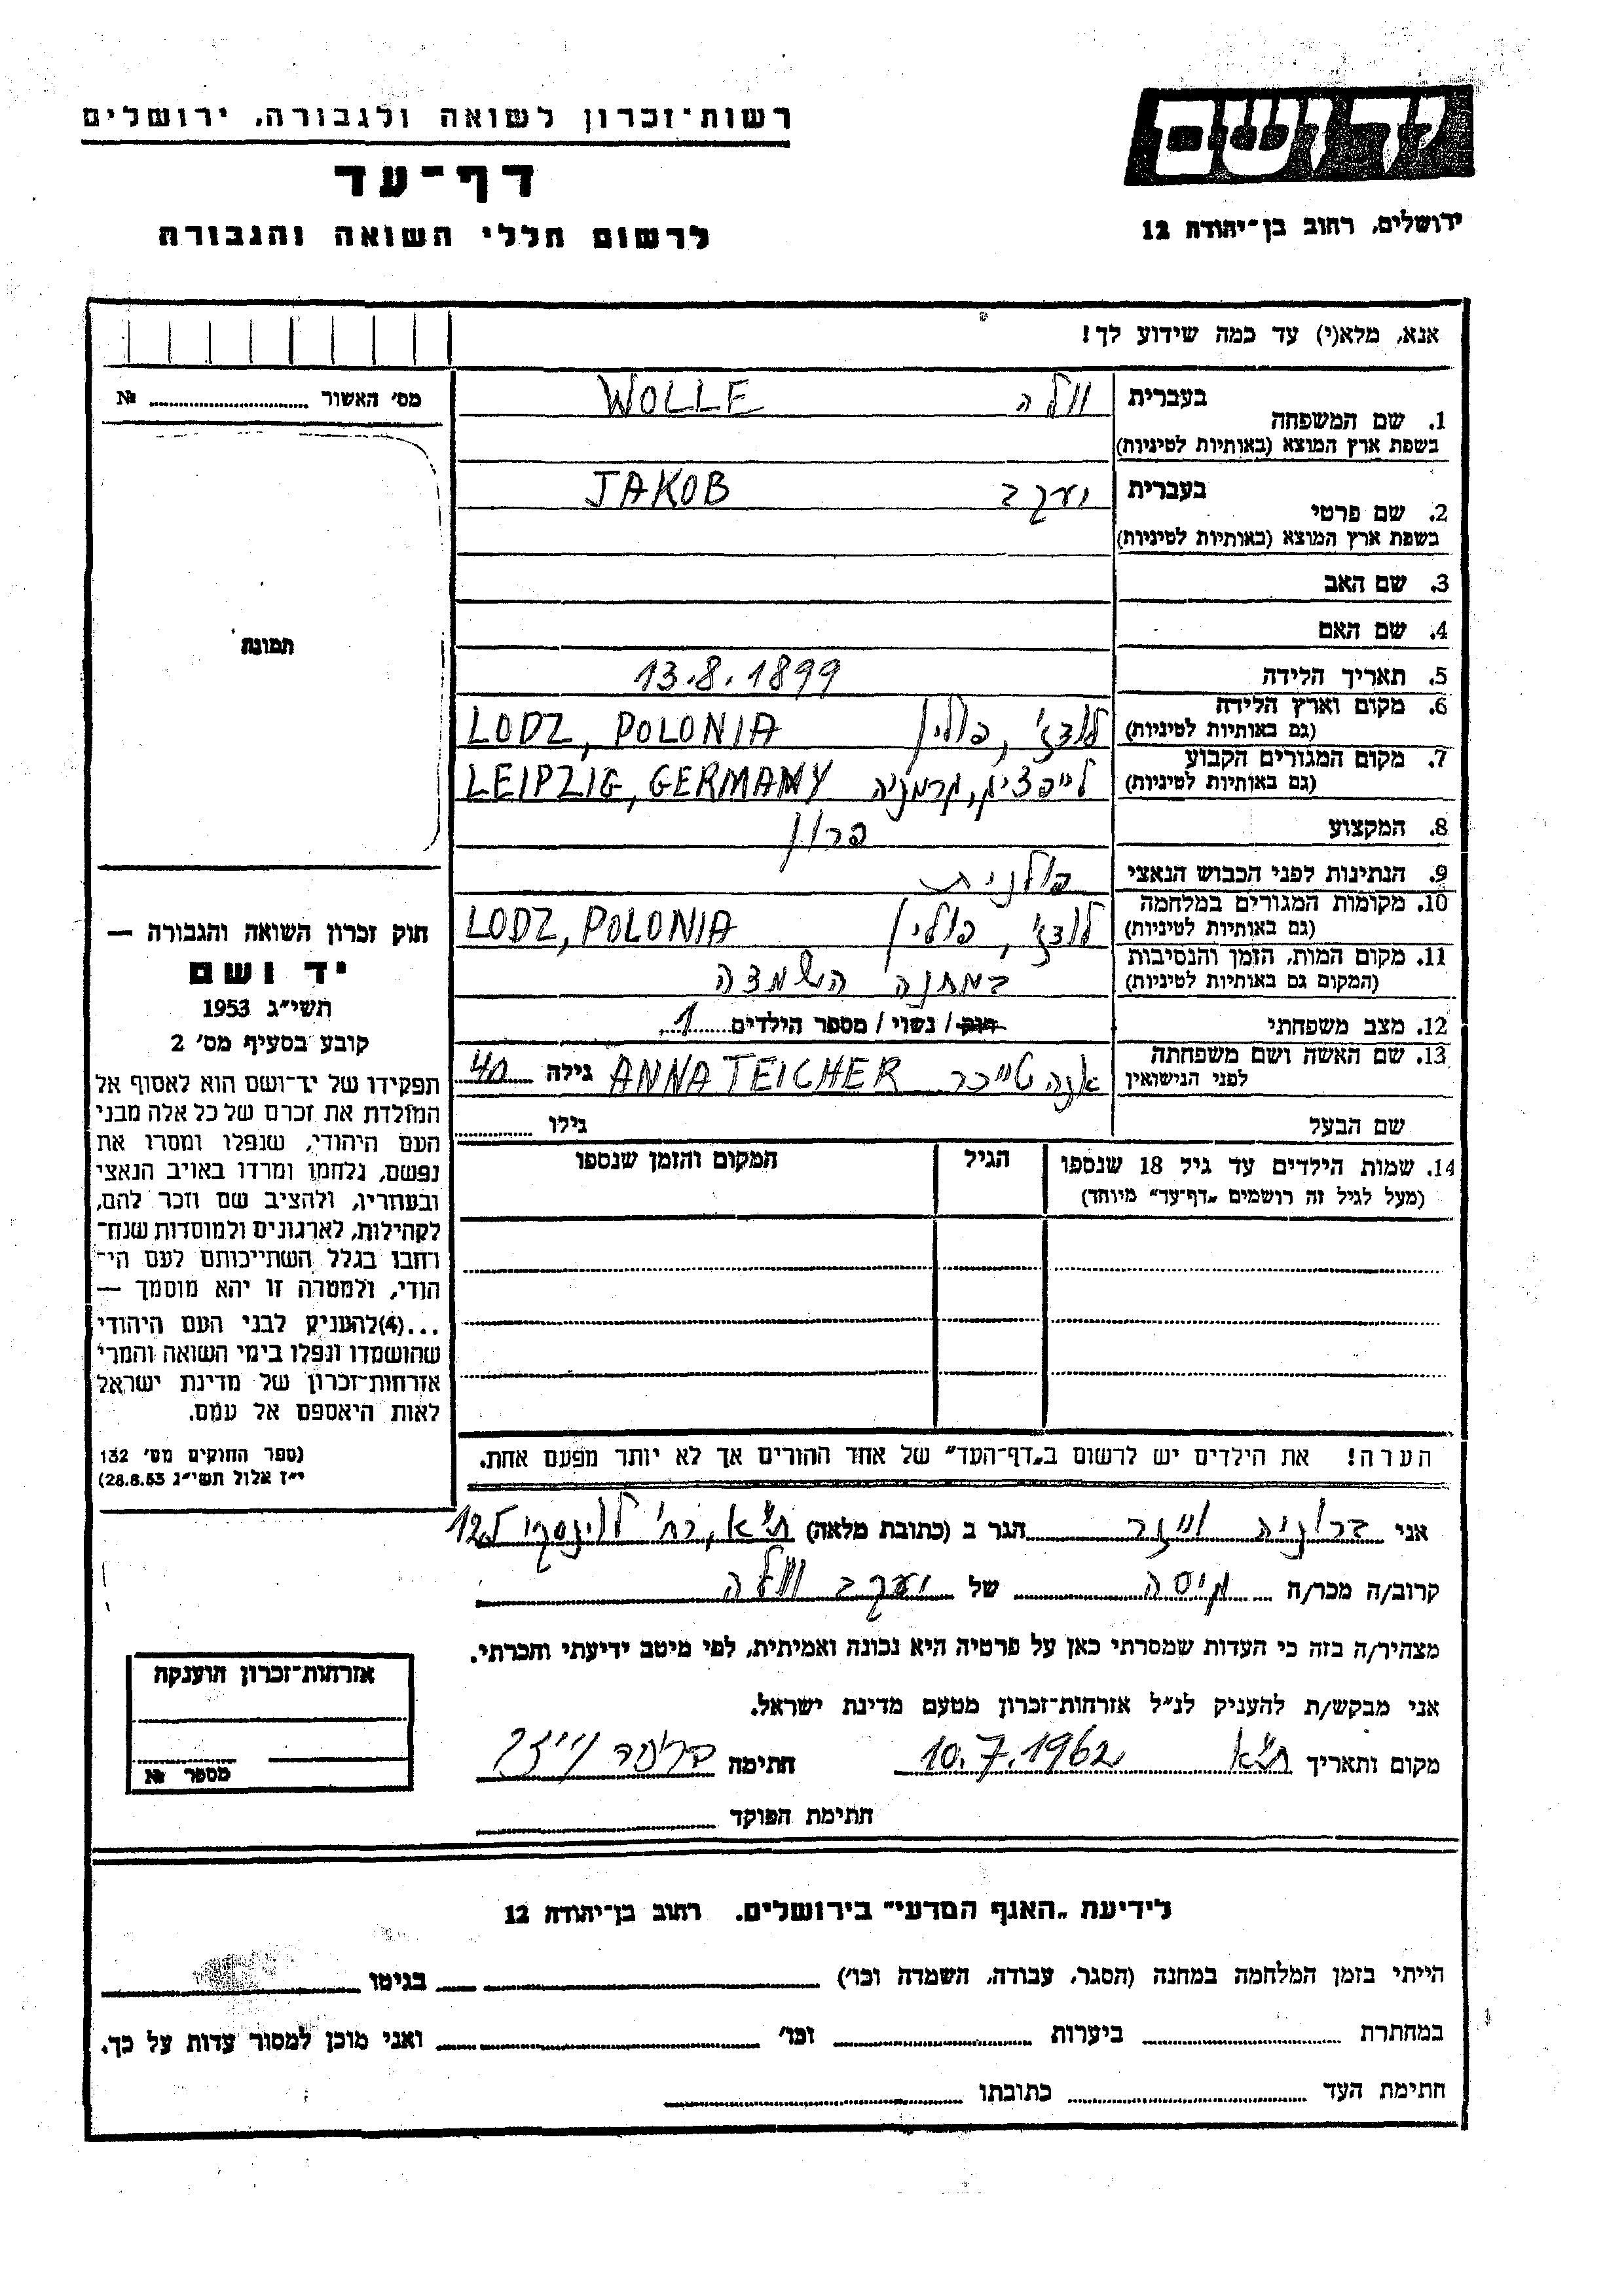 רשות־זכרון לשואה ולגבורה, ירושלים
דף־עד
לרשום חללי השואה והגבורה
יד ושם
ירושלים, רחוב בן־יהודה 12
אנא, מלא(י) עד כמה שידוע לך!
מס׳ האשור № 
תמונה
בעברית וולה WOLLE
1. שם המשפחה
בשפת ארץ המוצא (באותיות לטיניות)
בעברית יעקב JAKOB
2. שם פרטי
בשפת ארץ המוצא (באותיות לטיניות)
3. שם האב
4. שם האם
5. תאריך הלידה 13.8.1899
6. מקום וארץ הלידה
(גם באותיות לטיניות) לודז׳, פולין LODZ, POLONIA
7. מקום המגורים הקבוע
(גם באותיות לטיניות) לייפציג, גרמניה LEIPZIG, GERMANY
8. המקצוע פרוון
9. הנתינות לפני הכבוש הנאצי פולנית
10. מקומות המגורים במלחמה
(גם באותיות לטיניות) לודז׳, פולין LODZ, POLONIA
11. מקום המות, הזמן והנסיבות
(המקום גם באותיות לטיניות) במחנה השמדה
12. מצב משפחתי רוק / נשוי / מספר הילדים 1
13. שם האשה ושם משפחתה
לפני הנישואין אנה טייכר ANNA TEICHER גילה 40
שם הבעל גילו
14. שמות הילדים עד גיל 18 שנספו הגיל המקום והזמן שנספו
(מעל לגיל זה רושמים „דף־עד״ מיוחד)
חוק זכרון השואה והגבורה —
יד ושם
תשי״ג 1953
קובע בסעיף מס׳ 2
תפקידו של יד־ושם הוא לאסוף אל
המולדת את זכרם של כל אלה מבני
העם היהודי, שנפלו ומסרו את
נפשם, נלחמו ומרדו באויב הנאצי
ובעוזריו, ולהציב שם וזכר להם,
לקהילות, לארגונים ולמוסדות שנח־
רבו בגלל השתייכותם לעם הי־
הודי, ולמטרה זו יהא מוסמך —
...(4)להעניק לבני העם היהודי
שהושמדו ונפלו בימי השואה והמרי
אזרחות־זכרון של מדינת ישראל
לאות היאספם אל עמם.
(ספר החוקים מס׳ 132
י״ז אלול תשי״ג 28.8.53)
הערה! את הילדים יש לרשום ב„דף־העד״ של אחד ההורים אך לא יותר מפעם אחת.
אני ברוניה ויינר הגר ב (כתובת מלאה) ת״א, רח׳ 12
קרוב/ה מכר/ה גיסה של יעקב וולה
מצהיר/ה בזה כי העדות שמסרתי כאן על פרטיה היא נכונה ואמיתית, לפי מיטב ידיעתי והכרתי.
אני מבקש/ת להעניק לנ״ל אזרחות־זכרון מטעם מדינת ישראל.
מקום ותאריך ת״א 10.7.1962 חתימה
חתימת הפוקד
אזרחות־זכרון הוענקה
מספר №
לידיעת „האגף המדעי״ בירושלים. רחוב בן־יהודה 12
הייתי בזמן המלחמה במחנה (הסגר, עבודה, השמדה וכו׳) בגיטו
במחתרת ביערות וכו׳ ואני מוכן למסור עדות על כך.
חתימת העד כתובתו